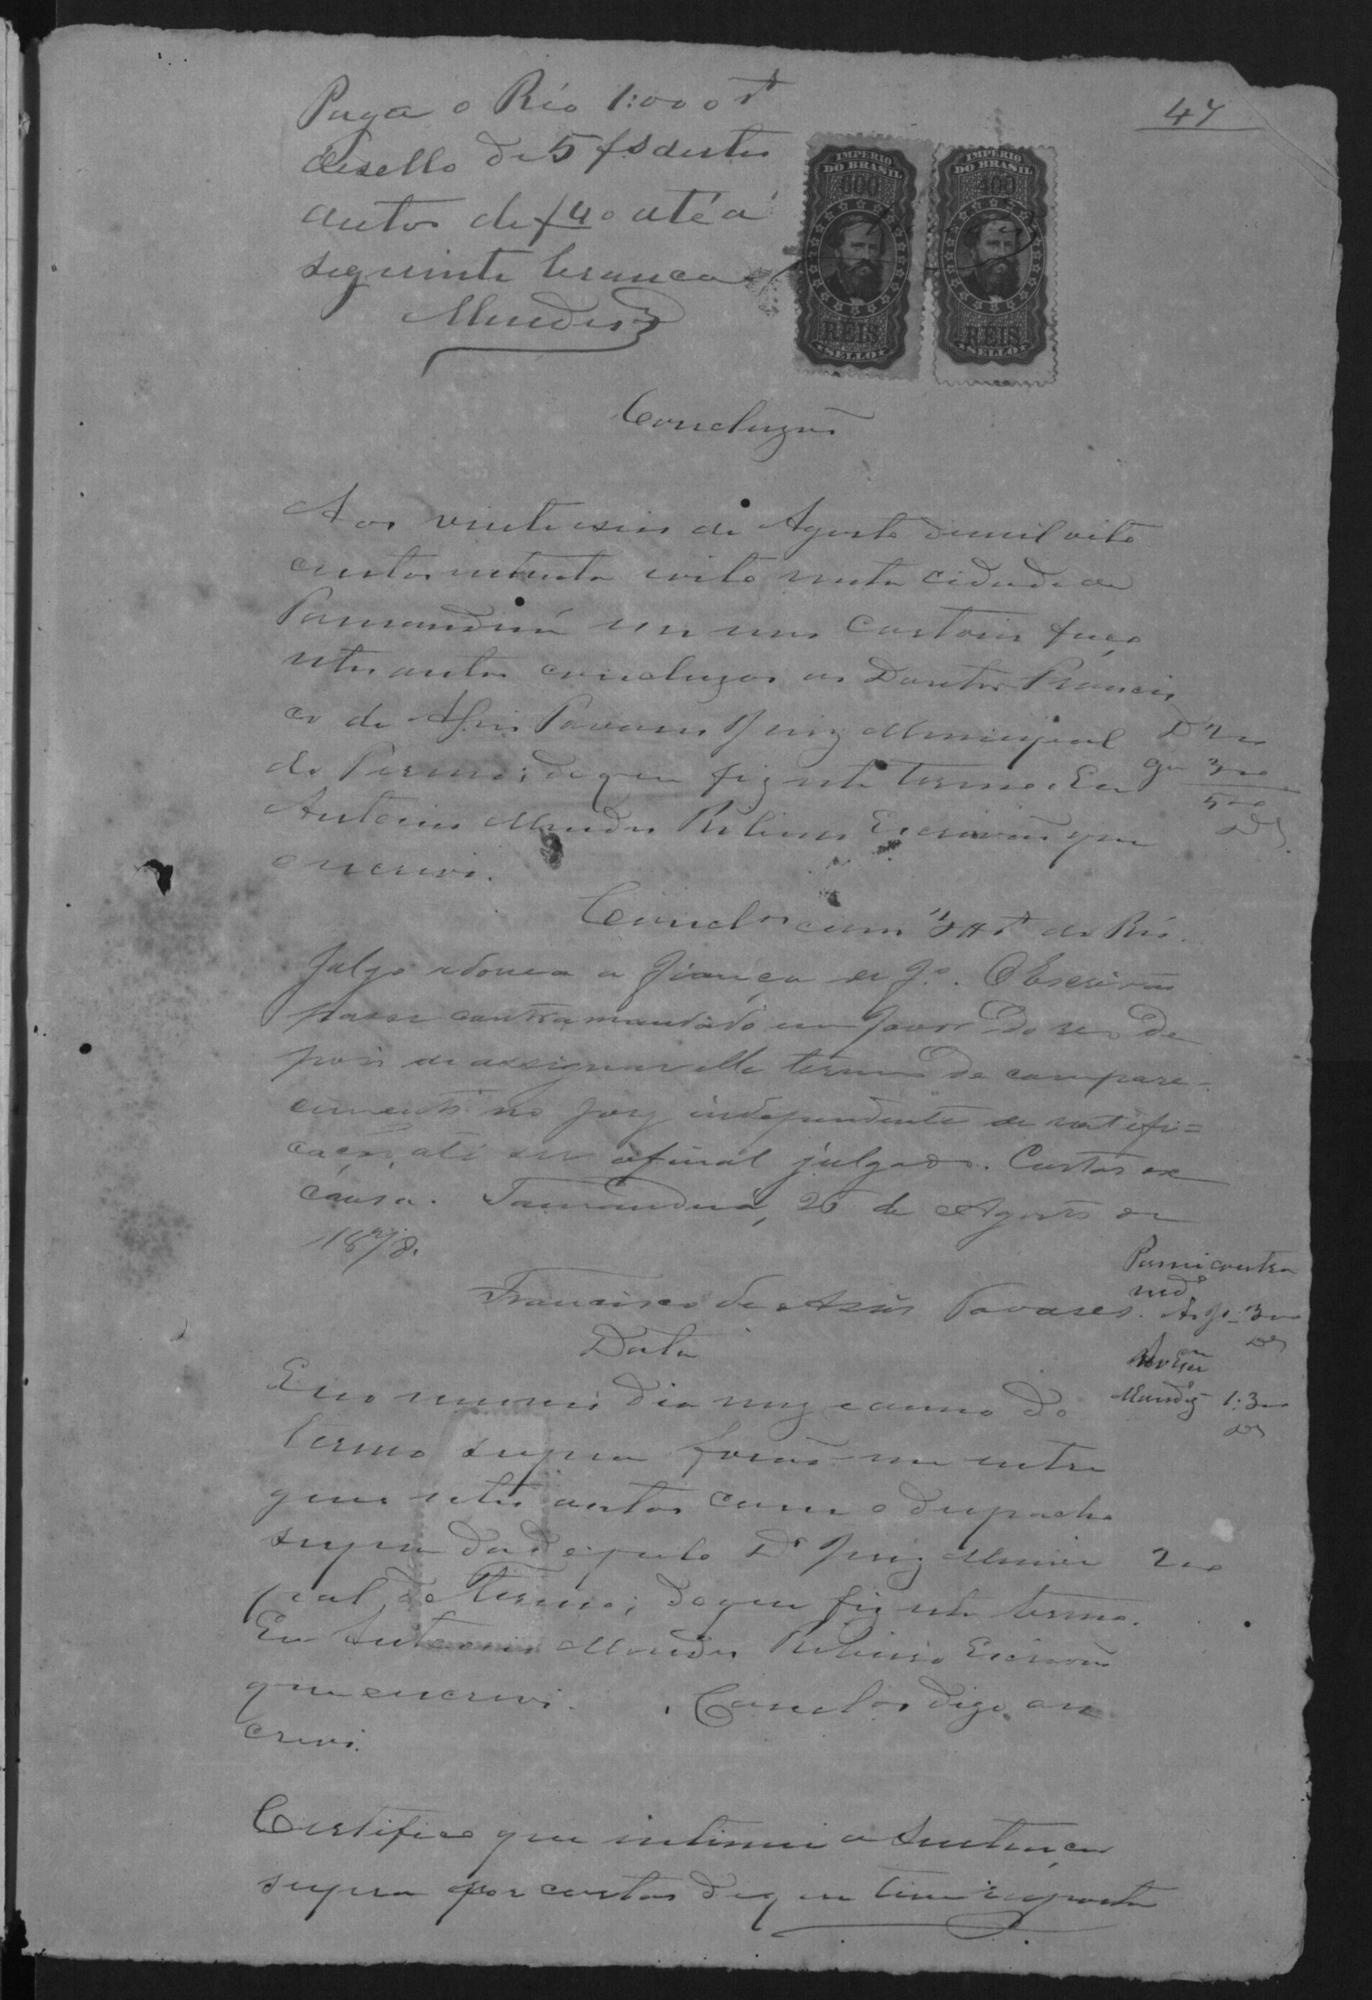 47
Paga o Réo 1:000 rs
de sello de 5 fs destes
autos de f 40 até a
seguinte branca
Mendes
IMPERIO DO BRASIL
600
REIS
SELLO
IMPERIO DO BRASIL
400
REIS
SELLO
Concluzão
Aos vinte e seis de Agosto de mil oito
centos e setenta e oito nesta cidade de
Tamanduá em meu cartorio faço
estes autos concluzos ao Doutor Francis
co de Assis Tavares Juiz Municipal
do Termo; do que fiz este termo. Eu
Antonio Mendes Ribeiro Escrivão que
o escrevi.
D 200
G 300
500
Concls com
do Réo.
Julgo idonea a fiança de f. O Escrivão
passe contramandado em favor do reo de
pois de assignar elle termo de compare-
cimento no jury independente de notifi=
cação, até ser afinal julgado. Custas ex
causa. Tamanduá, 26 de Agosto de
1878.
Francisco de Assis Tavares.
Passei contra
md.o
300
Mandº 1:300
Data
E no mesmo dia mez e anno do
termo supra forão me entre
gues estes autos com o despacho
supra do Dr Juiz Munici
pal do Termo; do que fiz este termo.
Eu Antonio Mendes Ribeiro Escrivão
que escrevi. Conclos digo o es
crevi.
200
Certifico que intimei a Sentença
supra por cartas do que tive resposta